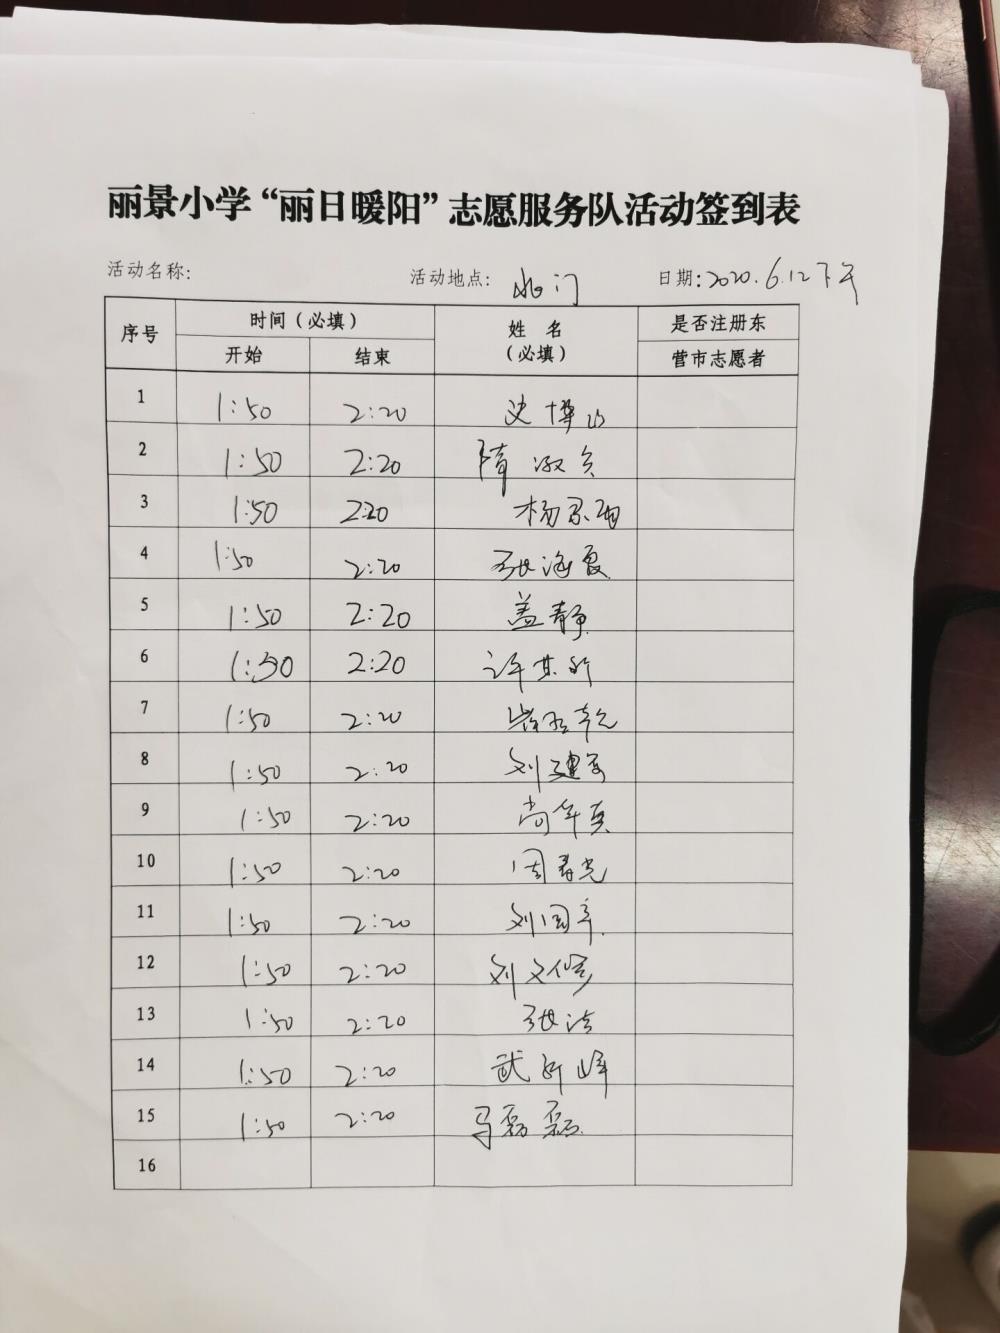 丽景小学“丽日暖阳”志愿服务队活动签到表
活动名称: 活动地点: 北门 日期: 2020.6.12下午
序号 时间(必填) 姓 名 (必填) 是否注册东
开始 结束 营市志愿者
1 1:50 2:20 史博
2 1:50 2:20 隋淑
3 1:50 2:20 杨
4 1:50 2:20 张海霞
5 1:50 2:20 盖静
6 1:50 2:20 许其
7 1:50 2:20
8 1:50 2:20 刘建
9 1:50 2:20 尚
10 1:50 2:20 周春光
11 1:50 2:20 刘国
12 1:50 2:20 刘文修
13 1:50 2:20 张洁
14 1:50 2:20 武 峰
15 1:50 2:20 马磊磊
16